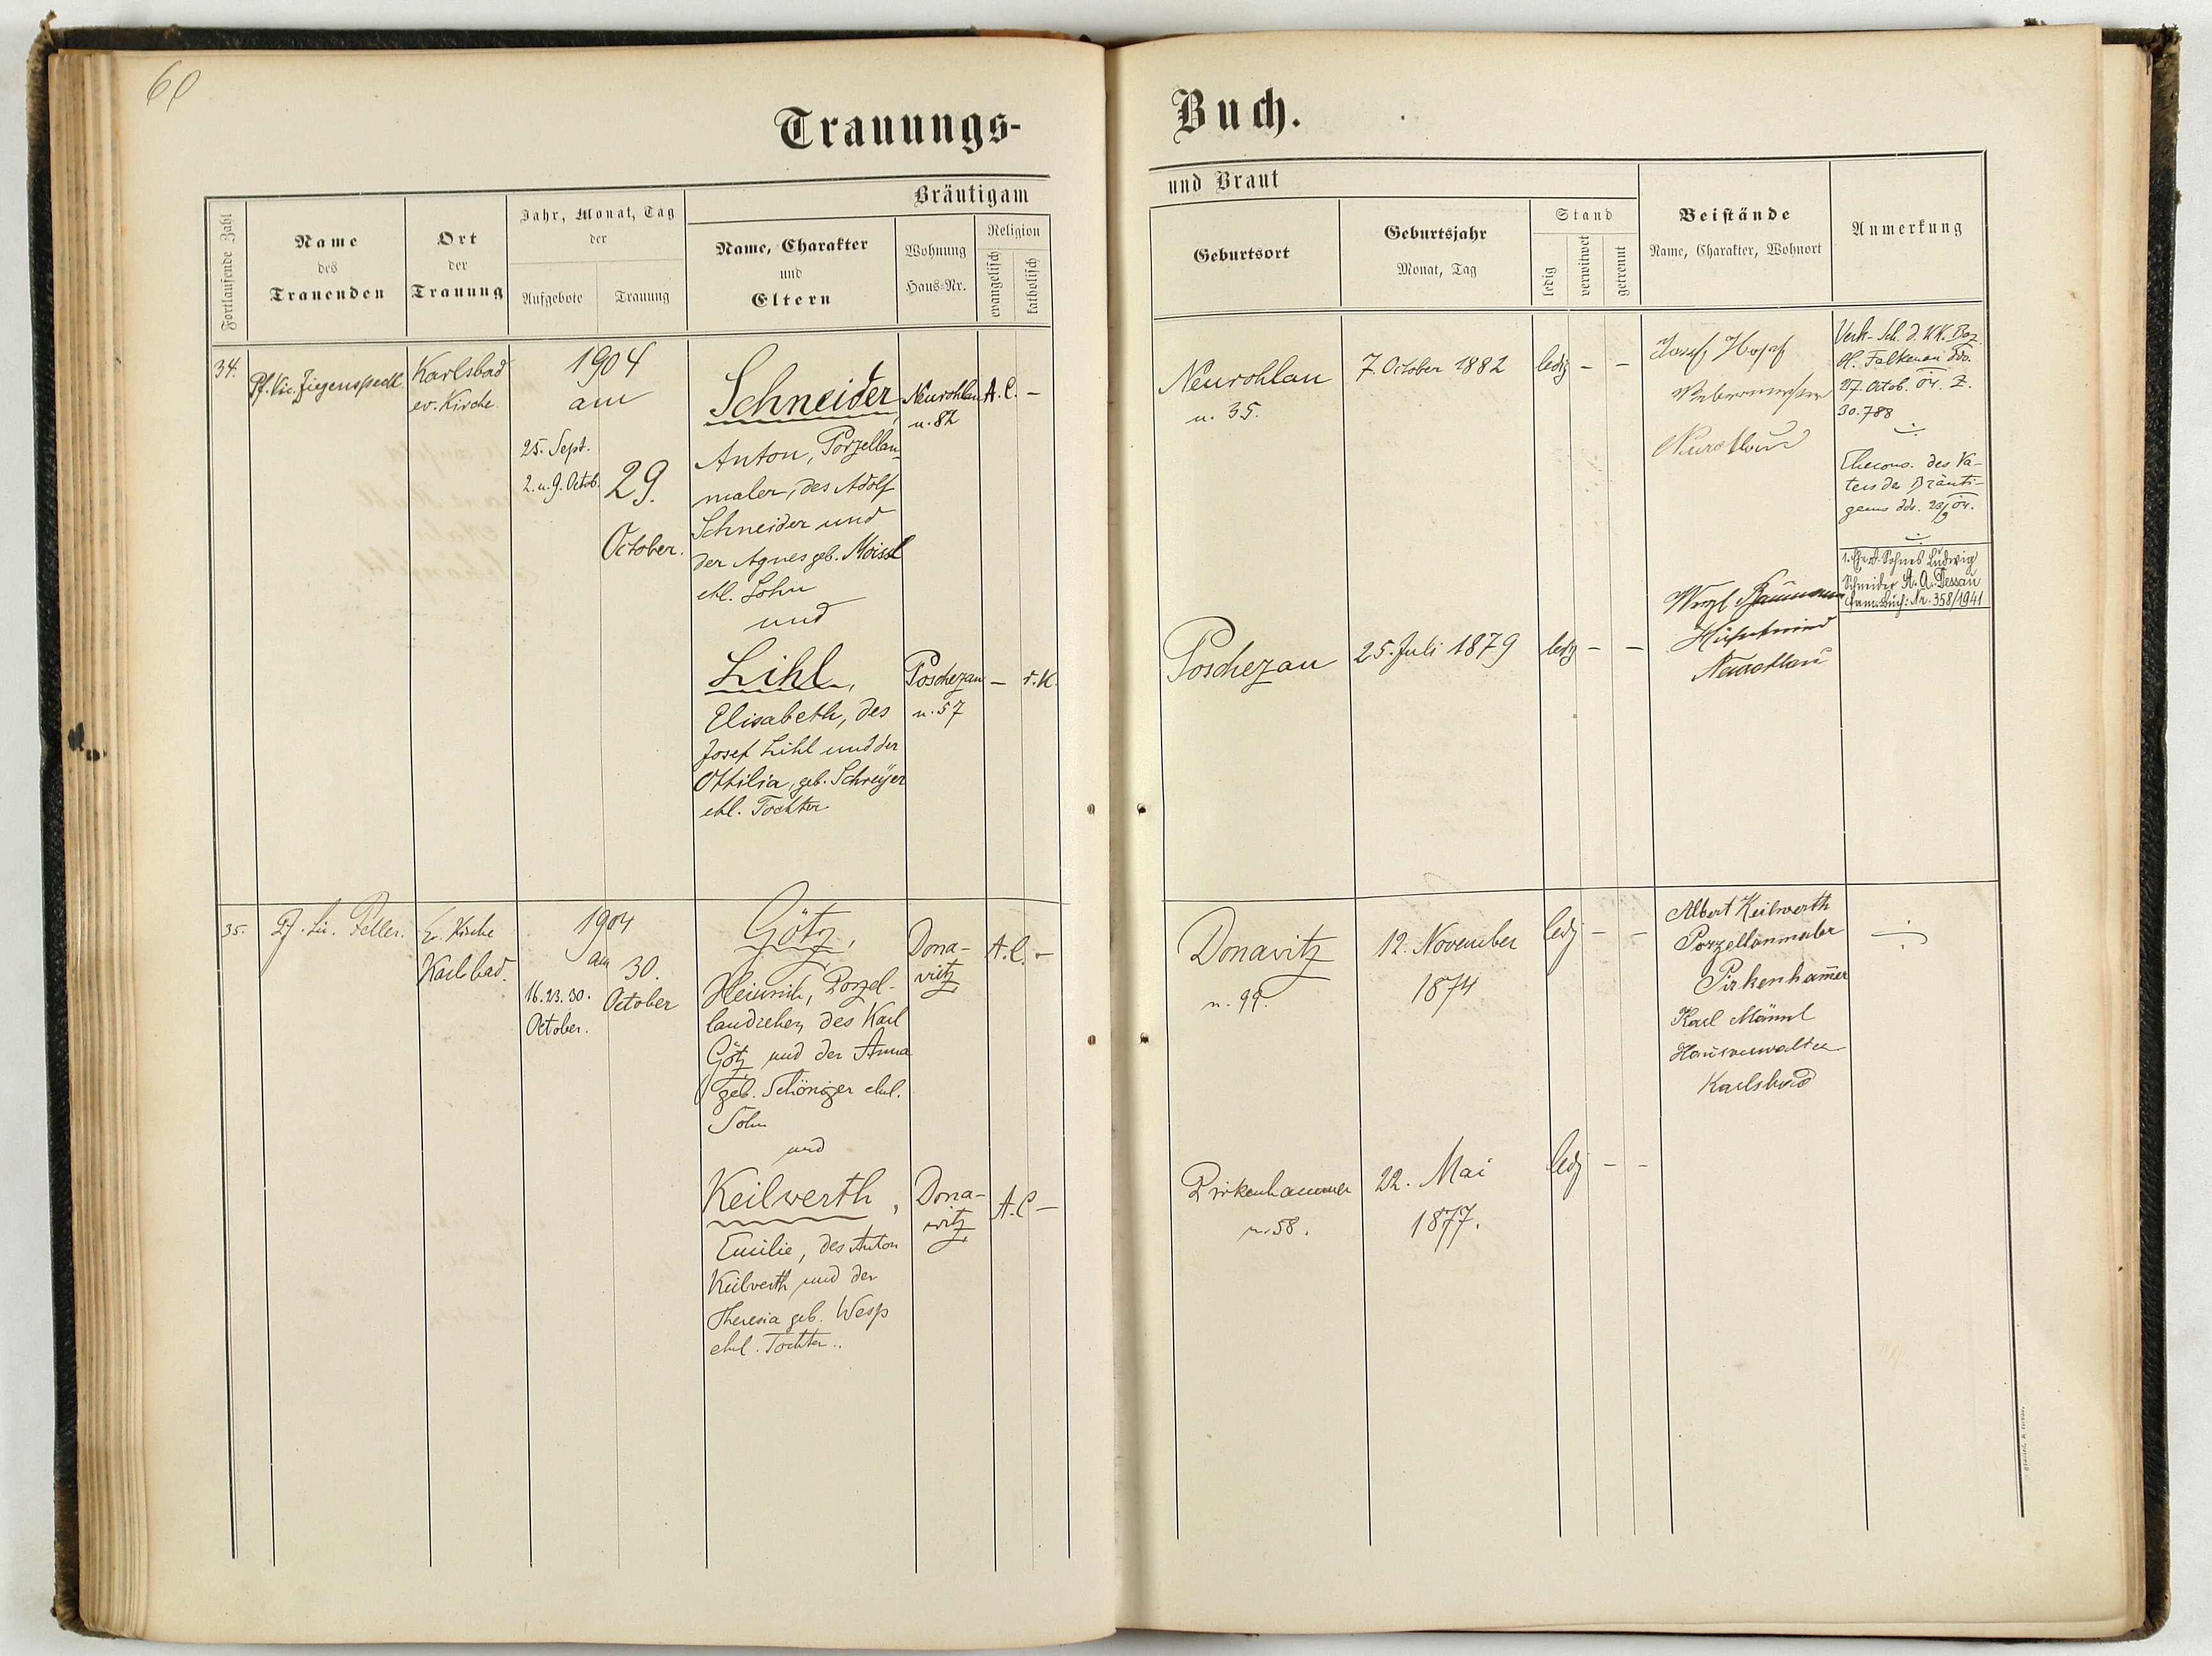 60
Trauungs-
Buch.
Fortlaufende Zahl
Name
des
Trauenden
Ort
der
Trauung
Jahr, Monat, Tag
der
Aufgebote
Trauung
Bräutigam
Name, Charakter
und
Eltern
Wohnung
Haus-Nr.
Religion
evangelisch
katholisch
und Braut
Geburtsort
Geburtsjahr
Monat, Tag
Stand
ledig
verwitwet
getrennt
Beistände
Name, Charakter, Wohnort
Anmerkung
34.
Pf. Vic.
Karlsbad
ev. Kirche.
1904
am
25. Sept.
2. u. 9. Octob.
29.
October.
Schneider,
Anton, Porzellan-
maler, des Adolf
Schneider und
der Agnes geb. Moissl
ehl. Sohn
und
Lihl,
Elisabeth, des
Josef Lihl und der
Ottilia, geb. Schreÿer
ehl. Tochter.
Neurohlau
n. 82
A.C. –
Poschezau
n. 57
– r.K.
Neurohlau
n. 35.
7. October 1882
ledig – –
Josef
Neurohlau
Poschezau
25. Juli 1879
ledg – –
Wenzl Baumann
Neurohlau
Verk-Sch. d. KK. Bez.
H. Falkenau ddo.
27. Octob. 04. Z.
30.788
Ehecons. des Va-
ters des Bräuti-
gams ddo. 23/9 04.
1. Ehe d. Sohnes Ludwig
Schneider St. A. Dessau
Fam. Buch: Nr. 358/1941
35.
Pf. Vic. Feller.
Ev. Kirche
Karlsbad.
1904
am
16. 23. 30.
October.
30.
October
Götz,
Heinrich, Porzel-
landreher, des Karl
Götz und der Anna
geb. Schöniger ehel.
Sohn
und
Keilwerth,
Emilie, des Anton
Keilwerth und der
Theresia geb. Wesp
ehel. Tochter..
Dona-
witz
A.C. –
Dona-
witz
A.C –
Donawitz
n. 99.
12. November
1874
ledg – –
Pirkenhammer
n. 58.
22. Mai
1877.
ledg – –
Albert Keilwerth
Porzellanmaler
Pirkenham̄er
Karl Männl
Hausverwalter
Karlsbad